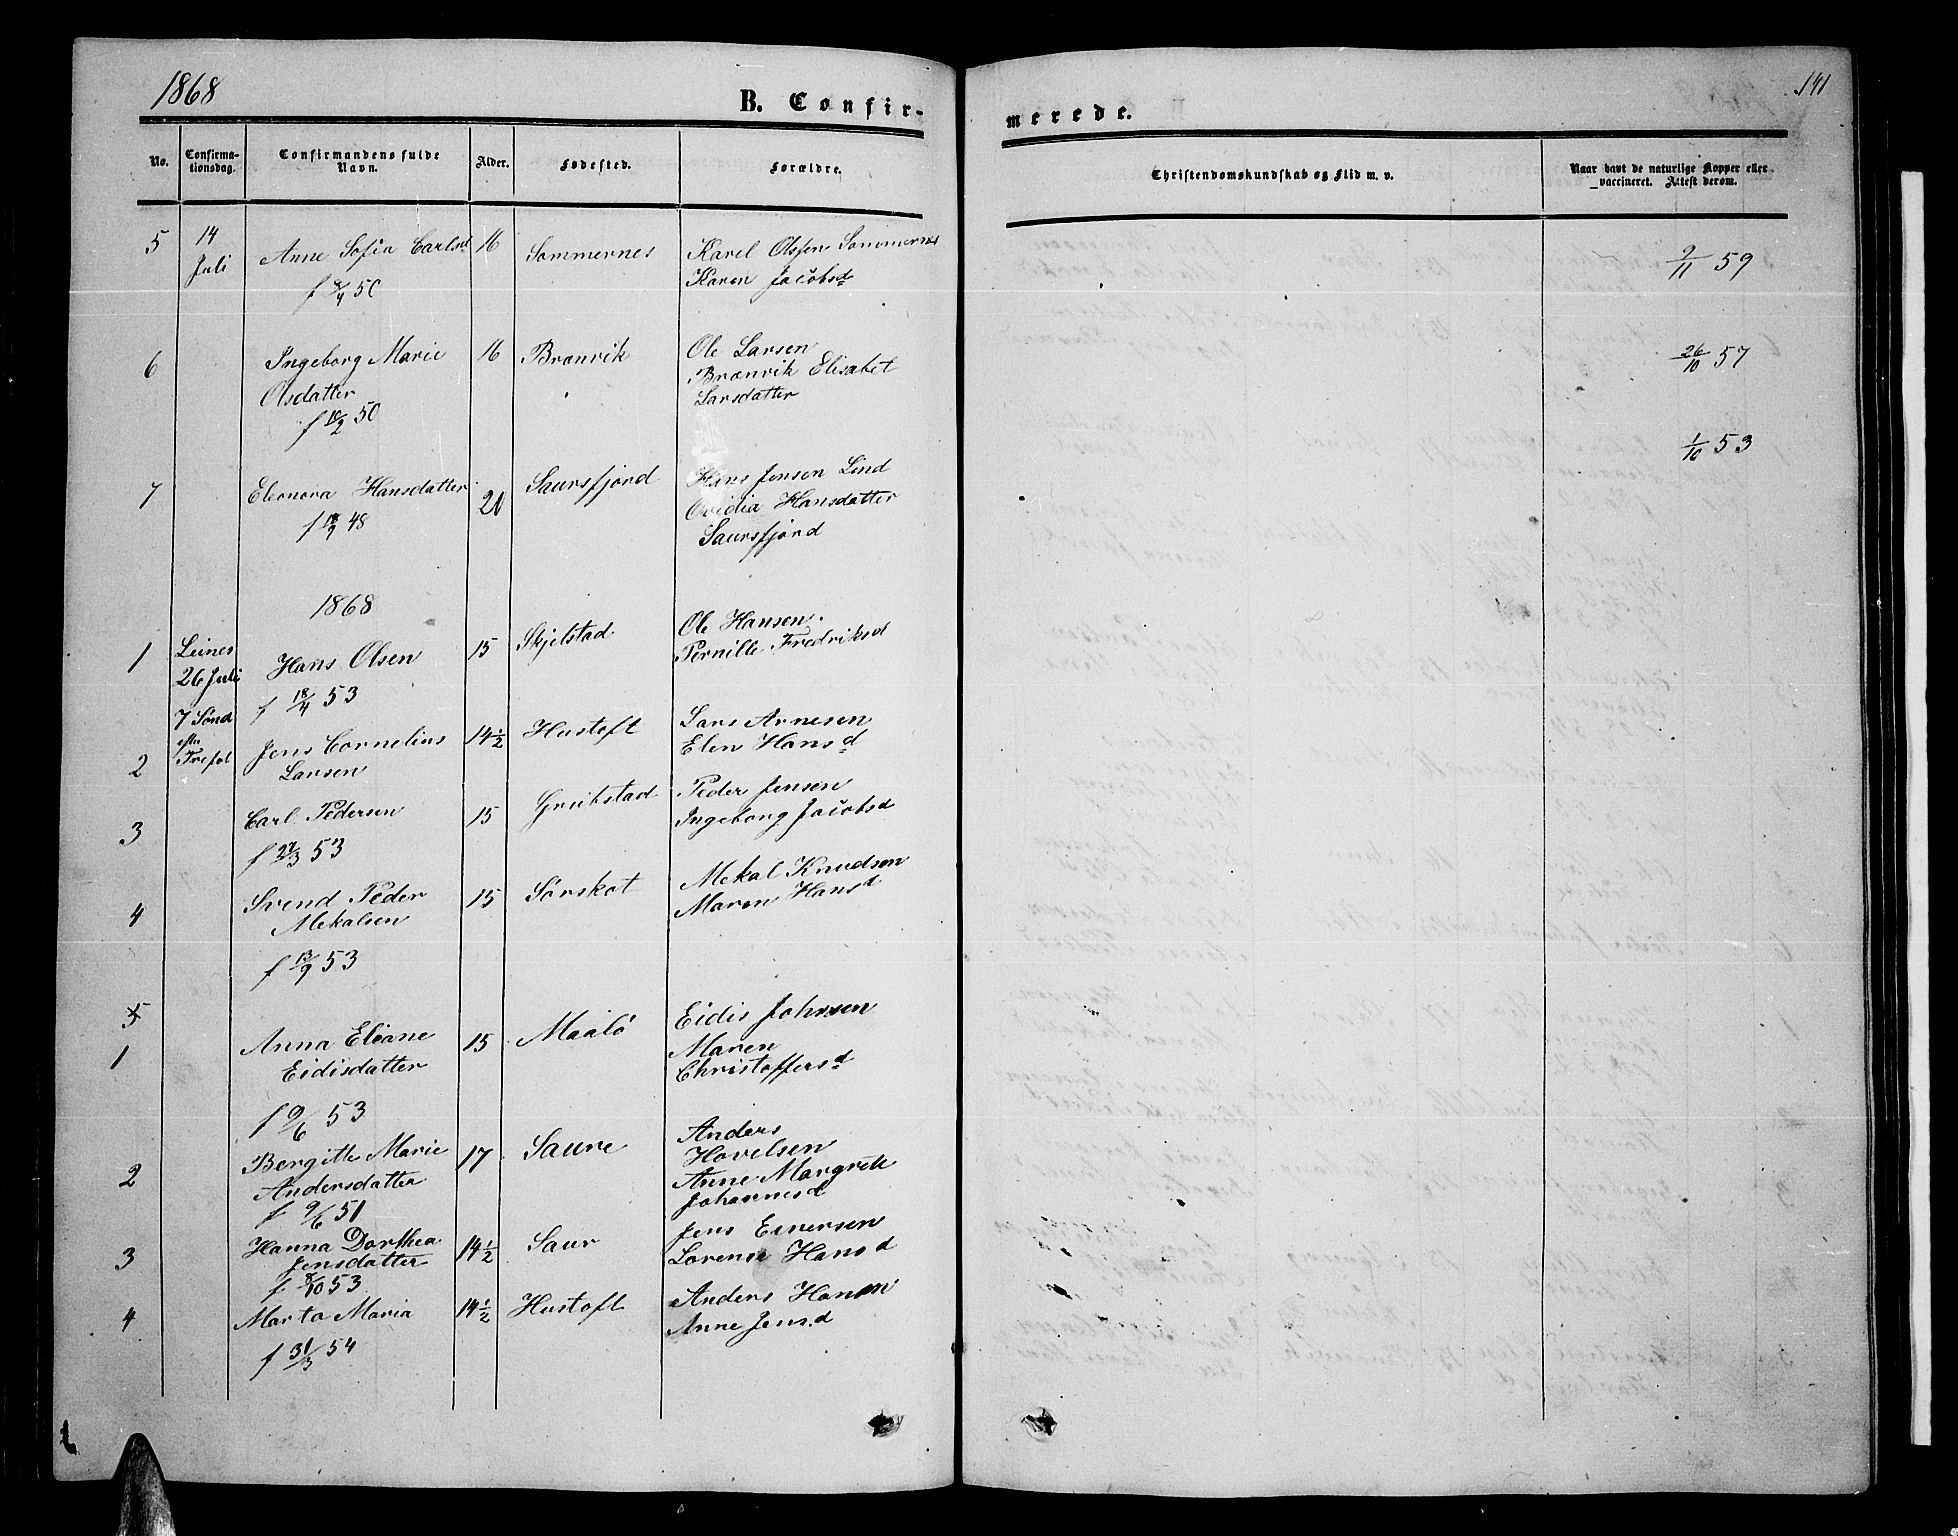 1868
B. Confir-
merede.
141
No.
Confirma-
tionsdag.
Confirmandens fulde
Navn.
Alder.
Fødested.
Forældre.
Christendomskundskab og Flid m. v.
Naar havt de naturlige Kopper eller
vaccineret. Attest derom.
5 14 Juli Anne Sofia Carlsd 16 Sommernes Karel Olssen Sommernes
Karen Jacobsd
f 8/4 50
9/11 59
6 Ingeborg Marie 16 Brænvik Ole Larsen
Olsdatter Brænvik Elisabet
f 10/2 50 Larsdatter
26/10 57
7 Eleonora Hansdatter 20 Saursfjord Hans Jensen Lind
f 18/9 48 Ovidia Hansdatter
Saursfjord
1/10 53
1868
1 Leines Hans Olsen 15 Skjelstad Ole Hansen
26 Juli f 18/4 53 Pernille Fredriksd
7 Sønd
efter
Trefol
2 Jens Cornelius 14 1/2 Hustoft Lars Arnesen
Larsen Elen Hansd
3 Carl Pedersen 15 Peder Jensen
f 27/3 53 Ingeborg Jacobsd
4 Svend Peder 15 Sørskot Mekal Knudsen
Mekalsen Maren Hansd
f 13/9 53
5
1 Anna Eliane 15 Maalö Eidis Johnsen
Eidisdatter Maren
Christoffersd
f 9/6 53
2 Bergitte Marie 17 Saure Anders
Andersdatter Havelsen
f 9/6 51 Anne Margrete
Johannesd
3 Hanna Dorthea 14 1/2 Saur Jens Einersen
Jensdatter Lorense Hansd
f 8/10 53
4 Marta Maria 14 1/2 Hustoft Anders Hansen
f 31/3 54 Anne Jensd